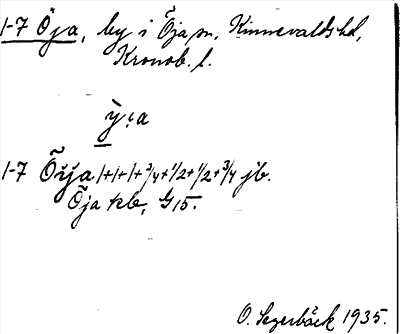 1-7 Öja, by i Öja sn, Kinnevalds hd,
Kronob. l.
1-7 Öija 1+1+1+3/4+1/2+1/2+3/4 jb.
Öja kb, G 15.
O. Segerbäck 1935.